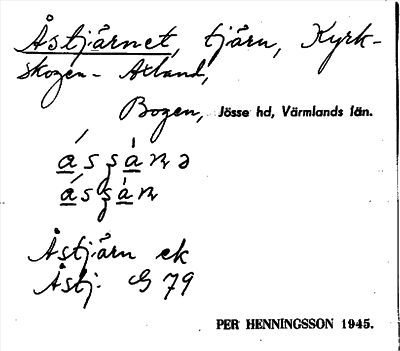 Åstjärnet, tjärn, Kyrk-
skogen - Ålland,
Bogen, Jösse hd, Värmlands län.
Åstjärn ek
Åstj. G 79
PER HENNINGSSON 1945.